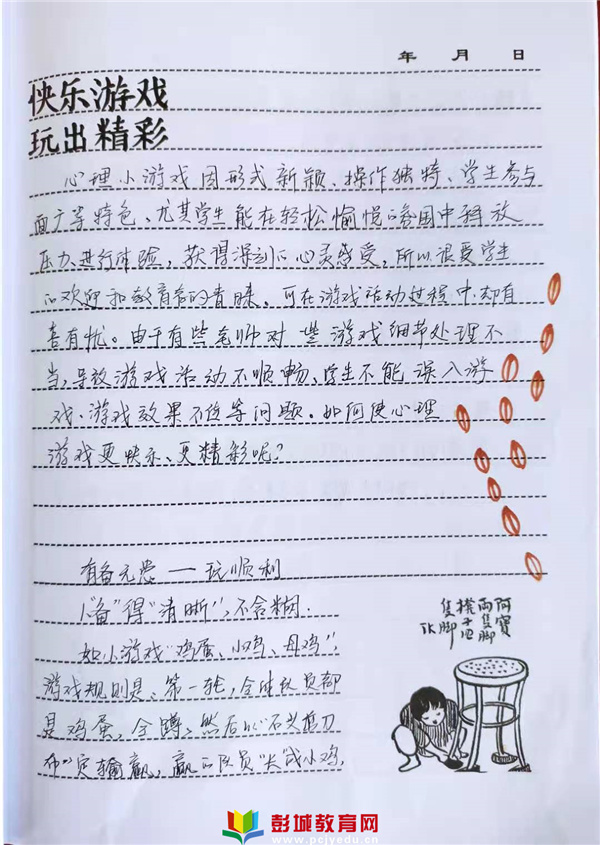 年 月 日
快乐游戏
玩出精彩
心理小游戏因形式新颖、操作独特、学生参与
面广等特色、尤其学生能在轻松愉悦的氛围中释放
压力进行体验，获得深刻的心灵感受，所以很受学生
的欢迎和教育者的青睐。可在游戏活动过程中却有
喜有忧。由于有些老师对一些游戏细节处理不
当，导致游戏活动不顺畅、学生不能深入游
戏、游戏效果不佳等问题。如何使心理
游戏更快乐、更精彩呢？
有备无患——玩顺利
1."备"得"清晰"，不含糊.
如小游戏"鸡蛋、小鸡、母鸡"，
游戏规则是、第一轮，全体队员都
是鸡蛋，全蹲，然后以"石头剪刀
布"定输赢，赢的队员"长"成小鸡，
阿寶
兩隻腳
凳子四
隻腳
彭城教育网
www.pcjyedu.cn